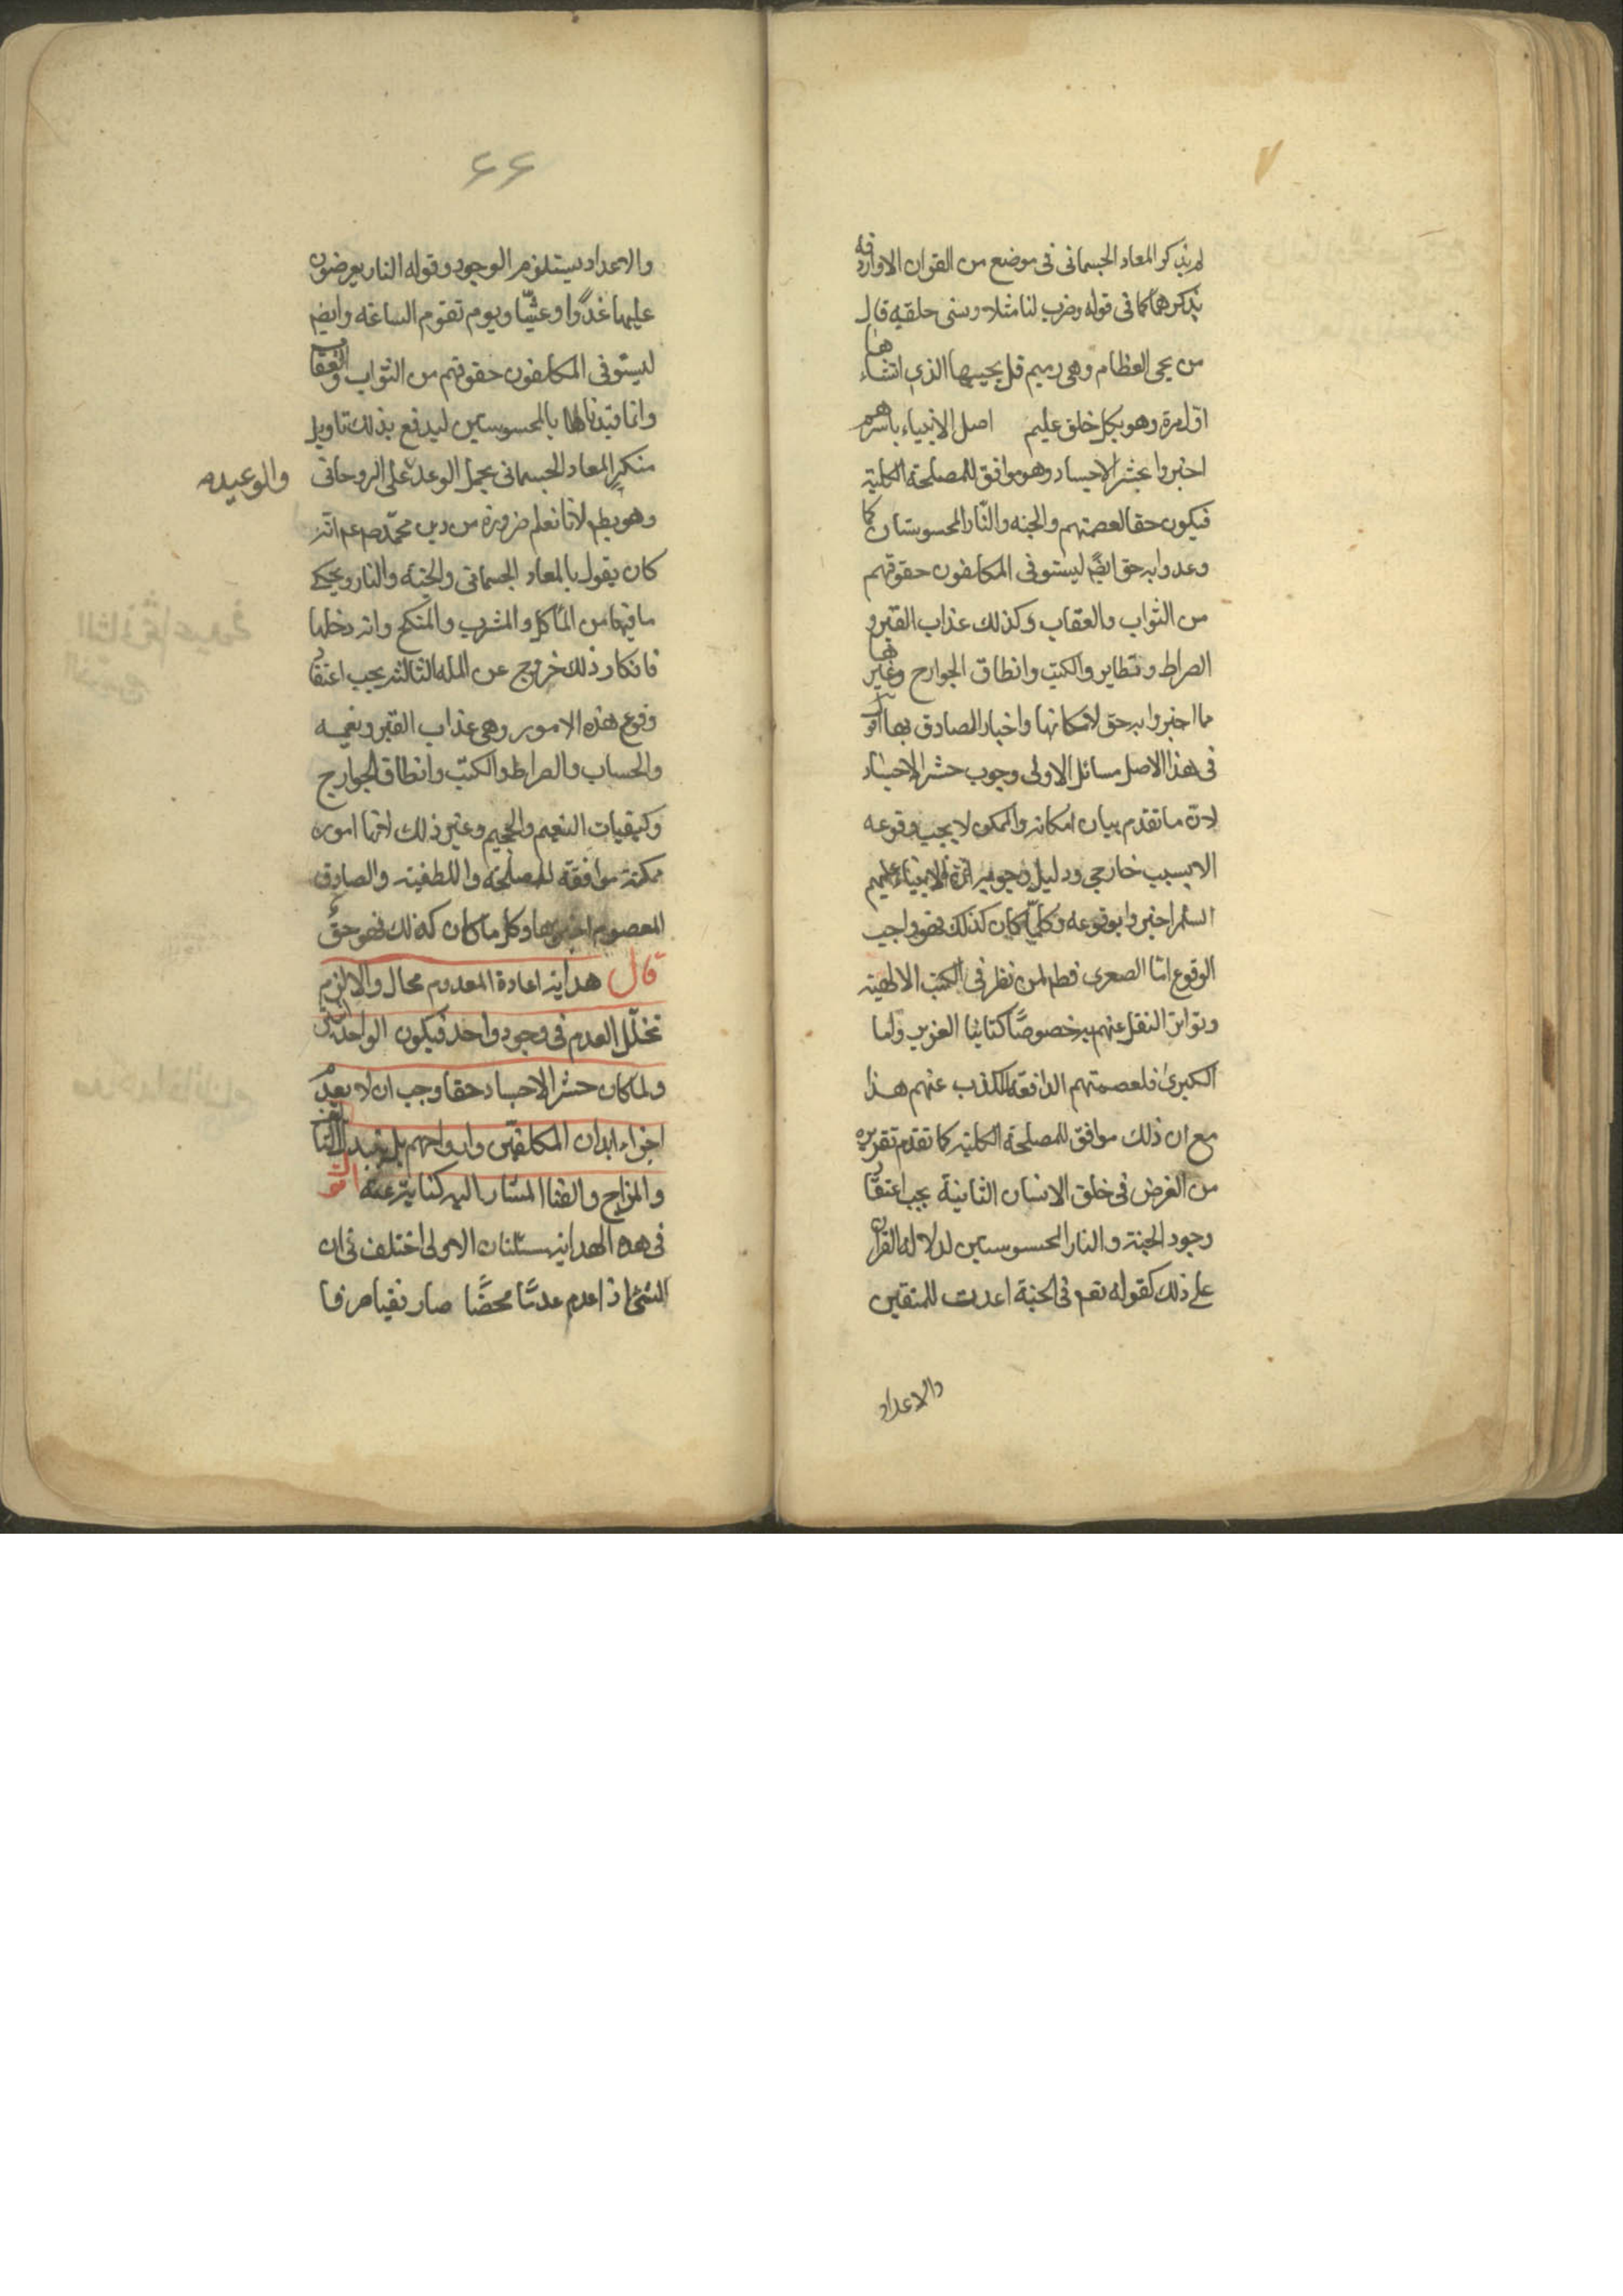 لم يذكر المعاد الجسمانى فى موضع من القران الا واردفه
بذكرهما كما فى قوله وضرب لنا مثلا ونسى خلقه قال
من يحى العظام وهى رميم قل يحييها الذى انشاءها
اول مرة وهو بكل خلق عليم اصل الانبياء باسرهم
اخبروا بحشر الاجساد وهو موافق للمصلحة الكلية
فيكون حقا لعصمتهم والجنه والنار المحسوستان كما
وعدوا به حق ايضا ليستوفى المكلفون حقوقهم
من الثواب والعقاب وكذلك عذاب القبر و
الصراط وتطاير والكتب وانطاق الجوارح وغيرها
مما اخبروا به حق لامكانها واخبار الصادق بها اقول
فى هذا الاصل مسائل الاولى وجوب حشر الاجساد
لان ما تقدم بيان امكانه والممكن لا يجب وقوعه
الا بسبب خارجى ودليل وجوبه ان الانبياء عليهم
السلم اخبروا بوقوعه وكلما كان كذلك فهو واجب
الوقوع امّا الصغرى فظم لمن نظر فى الكتب الالهية
وتواتر النقل عنهم به خصوصًا كتابنا العزيز واما
الكبرى فلعصمتهم الدافعة للكذب عنهم هذا
مع ان ذلك موافق للمصلحة الكلية كما تقدم تقريره
من الغرض فى خلق الانسان الثانية يجب اعتقاد
وجود الجنة والنار المحسوستين لدلاله القران
على ذلك كقوله تعم فى الجنة اعدت للمتقين
والاعداد
٦٦
والاعداد يستلزم الوجود وقوله النار يعرضون
عليها غدوّا وعشيّا ويوم تقوم الساعه وايضم
ليستوفى المكلفون حقوقهم من الثواب والعقاب
وانما قيدناهما بالمحسوستين ليدفع بذلك تاويل
منكرى المعاد الجسمانى بحمل الوعد على الروحانى
والوعيد
وهو بطم لانا نعلم ضرورة من دين محمّد صم عم انه
كان يقول بالمعاد الجسمانى والجنة والنار ويحكى
ما فيها من المأكل والمشرب والمنكح وانه دخلها
فانكار ذلك خروج عن المله الثالثه يجب اعتقاد
وقوع هذه الامور وهى عذاب القبر ونعيمه
والحساب والصراط والكتب وانطاق الجوارح
وكيفيات النعيم والجحيم وغير ذلك لانها امور
ممكنة موافقة للمصلحة واللطفية والصادق
المعصوم اخبر بها وكل ما كان كذلك فهو حق
قال هداية اعادة المعدوم محال والا لزم
تخلّل العدم فى وجود واحد فيكون الواحد اثنين
ولما كان حشر الاجساد حقا وجب ان لا يعدم
اجزاء ابدان المكلفين وارواحهم بل يتبدل التاليف
والمزاج والفنا المشار اليه كناية عنه اقول
فى هذه الهداية مسئلتان الاولى اختلف فى ان
الشئ اذا عدم عدمًا محضًا صار نفيا صرفا